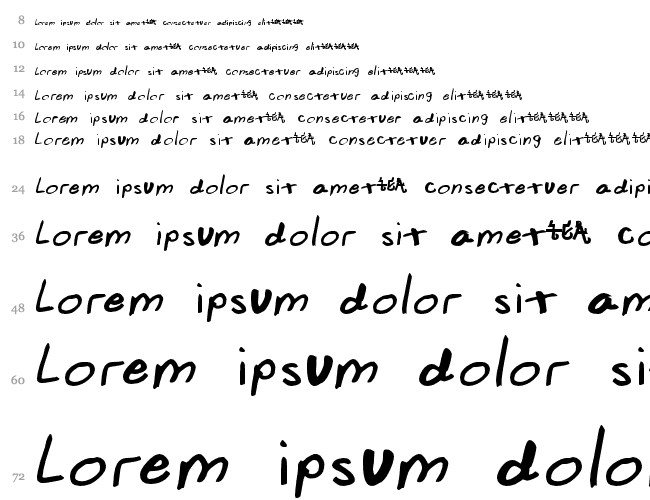 8 Lorem ipsum dolor sit amet consectetuer adipiscing elit
10 Lorem ipsum dolor sit amet consectetuer adipiscing elit
12 Lorem ipsum dolor sit amet consectetuer adipiscing elit
14 Lorem ipsum dolor sit amet consectetuer adipiscing elit
16 Lorem ipsum dolor sit amet consectetuer adipiscing elit
18 Lorem ipsum dolor sit amet consectetuer adipiscing elit
24 Lorem ipsum dolor sit amet consectetuer adipi
36 Lorem ipsum dolor sit amet co
48 Lorem ipsum dolor sit am
60 Lorem ipsum dolor si
72 Lorem ipsum dolo